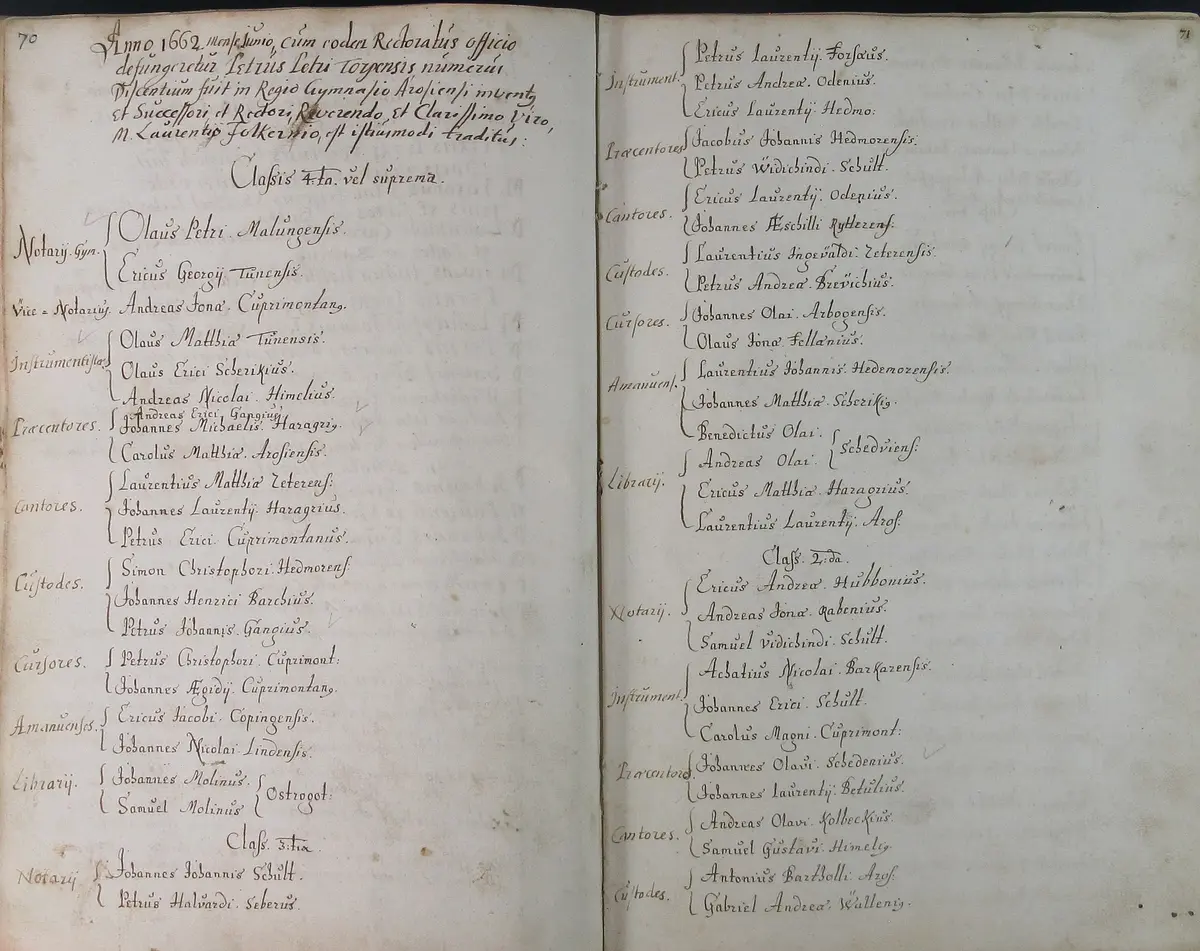 70
Anno 1662 mense Junio, cum eodem Rectoratus officio
defungeretur Petrus Petri Torpensis numerus
Discentium fuit in Regio Gymnasio Arosiensi invent9
et Successori et Rectori, Reverendo, et Clarissimo Viro,
M. Laurentio Folkernio, est istiusmodi traditus:
Classis 4.ta. vel suprema.
Notarij. Gym. Olaus Petri. Malungensis.
Ericus Georgij. Tunensis.
Vice = Notarius. Andreas Jonæ. Cuprimontan9.
Instrumentistæ Olaus Matthiæ Tunensis.
Olaus Erici Scherikius.
Andreas Nicolai. Himelius.
Andreas Erici Gangius
Præcentores. Johannes Michaelis. Haragri9.
Carolus Matthiæ. Arosiensis.
Laurentius Matthiæ Zeterens:
Cantores. Johannes Laurentij. Haragrius.
Petrus Erici Cuprimontanus.
Simon Christophori. Hedmorens:
Custodes. Johannes Henrici Barchius.
Petrus Johannis. Gangius.
Cursores. Petrus Christophori. Cuprimont:
Johannes Ægidij. Cuprimontan9.
Amanuenses. Ericus Jacobi. Copingensis.
Johannes Nicolai. Lindensis.
Librarij. Johannes Molinus.
Samuel Molinus Ostrogot:
Class. 3:tia.
Notarij Johannes Johannis Schult.
Petrus Halvardi. Seberus.
71
Petrus Laurentij. Forsæus.
Instrument. Petrus Andreæ. Odenius.
Ericus Laurentij Hedmo:
Præcentores Jacobus Johannis Hedmorensis.
Petrus Widichindi. Schult.
Cantores. Ericus Laurentij. Odenius.
Johannes Æschilli Rytterens:
Custodes. Laurentius Ingevaldi. Zeterensis.
Petrus Andreæ. Brevichius.
Cursores. Johannes Olai. Arbogensis.
Olaus Jonæ Fellænius.
Amanuens. Laurentius Johannis. Hedemorensis.
Johannes Matthiæ. Scheriki9.
Benedictus Olai.
Andreas Olai. Schedviens:
Librarij. Ericus Matthiæ. Haragrius.
Laurentius Laurentij. Aros:
Class. 2:da.
Ericus Andreæ. Hubbonius.
Notarij. Andreas Jonæ. Rabenius.
Samuel Vidichindi. Schult.
Achatius Nicolai. Barkarensis.
Instrument. Johannes Erici. Schult.
Carolus Magni. Cuprimont:
Præcentores Johannes Olavi. Schedenius.
Johannes Laurentij. Betulius.
Cantores. Andreas Olavi. Kolbeckius.
Samuel Gustavi. Himeli9.
Custodes. Antonius Bartholli. Aros:
Gabriel Andreæ. Walleni9.